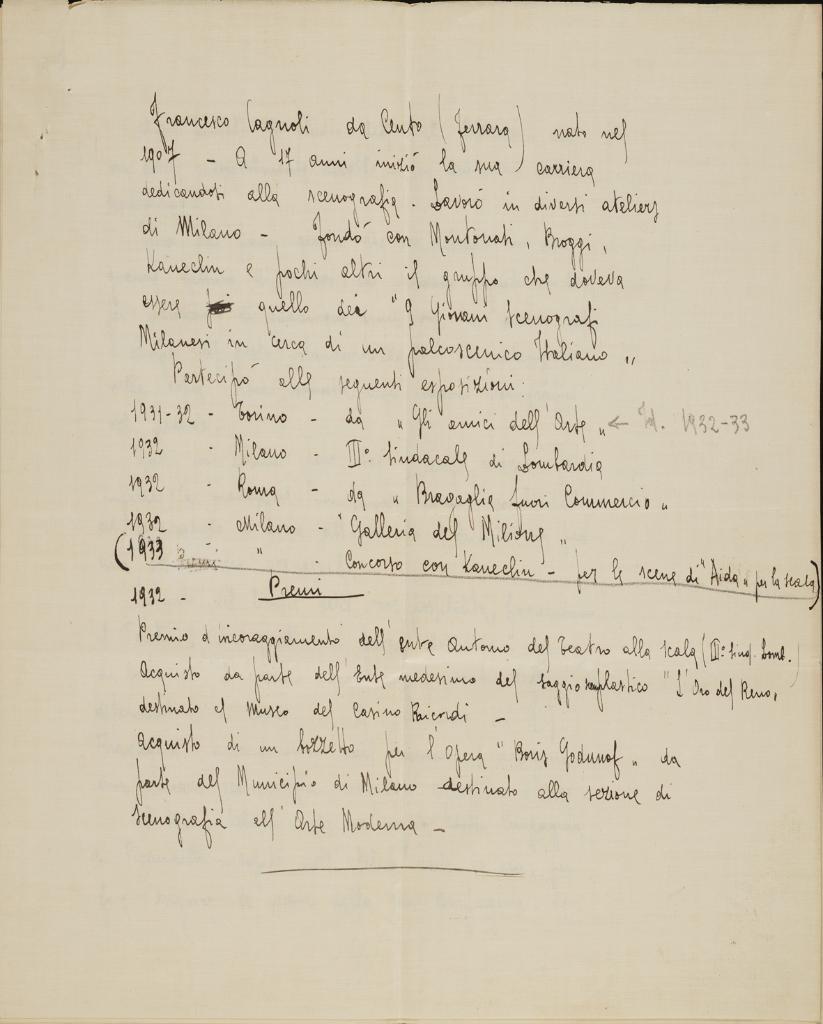 Francesco Cagnoli da Cento (Ferrara) nato nel
1907 - A 17 anni iniziò la sua carriera
dedicandosi alla scenografia. Lavorò in diversi ateliers
di Milano - Fondò con Montonati, Broggi,
Kaneclin e pochi altri il gruppo che doveva
essere quello dei " 9 Giovani Scenografi
Milanesi in cerca di un palcoscenico Italiano "
Partecipò alle seguenti esposizioni:
1931-32 - Torino - da " Gli amici dell'Arte " ← Id. 1932-33
1932 - Milano - III° Sindacale di Lombardia
1932 - Roma - da " Bragaglia fuori Commercio "
1932 - Milano - " Galleria del Milione "
(1933 " - Concorso con Kaneclin - per le scene di " Aida " per la Scala)
1932 - Premi
Premio d'incoraggiamento dell'Ente Autonomo del Teatro alla Scala (III° Sind. Lomb.)
Acquisto da parte dell'Ente medesimo del saggio scenoplastico " L'Oro del Reno "
destinato al Museo del Casino Ricordi -
Acquisto di un bozzetto per l'Opera " Boris Godunof " da
parte del Municipio di Milano destinato alla sezione di
scenografia all'Arte Moderna -